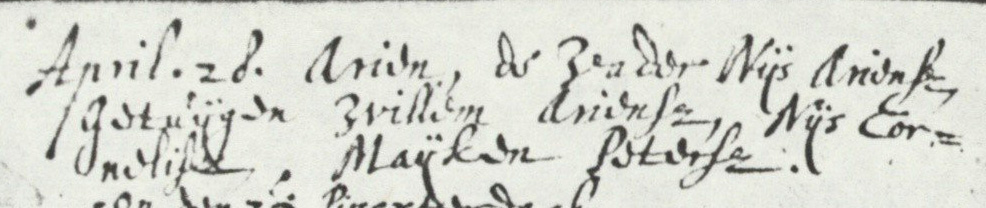 April. 28. Arien, de Vader Nijs Ariense,
getuijgen Willem Ariense, Nijs Cor-
nelisse, Maijken Peterse.